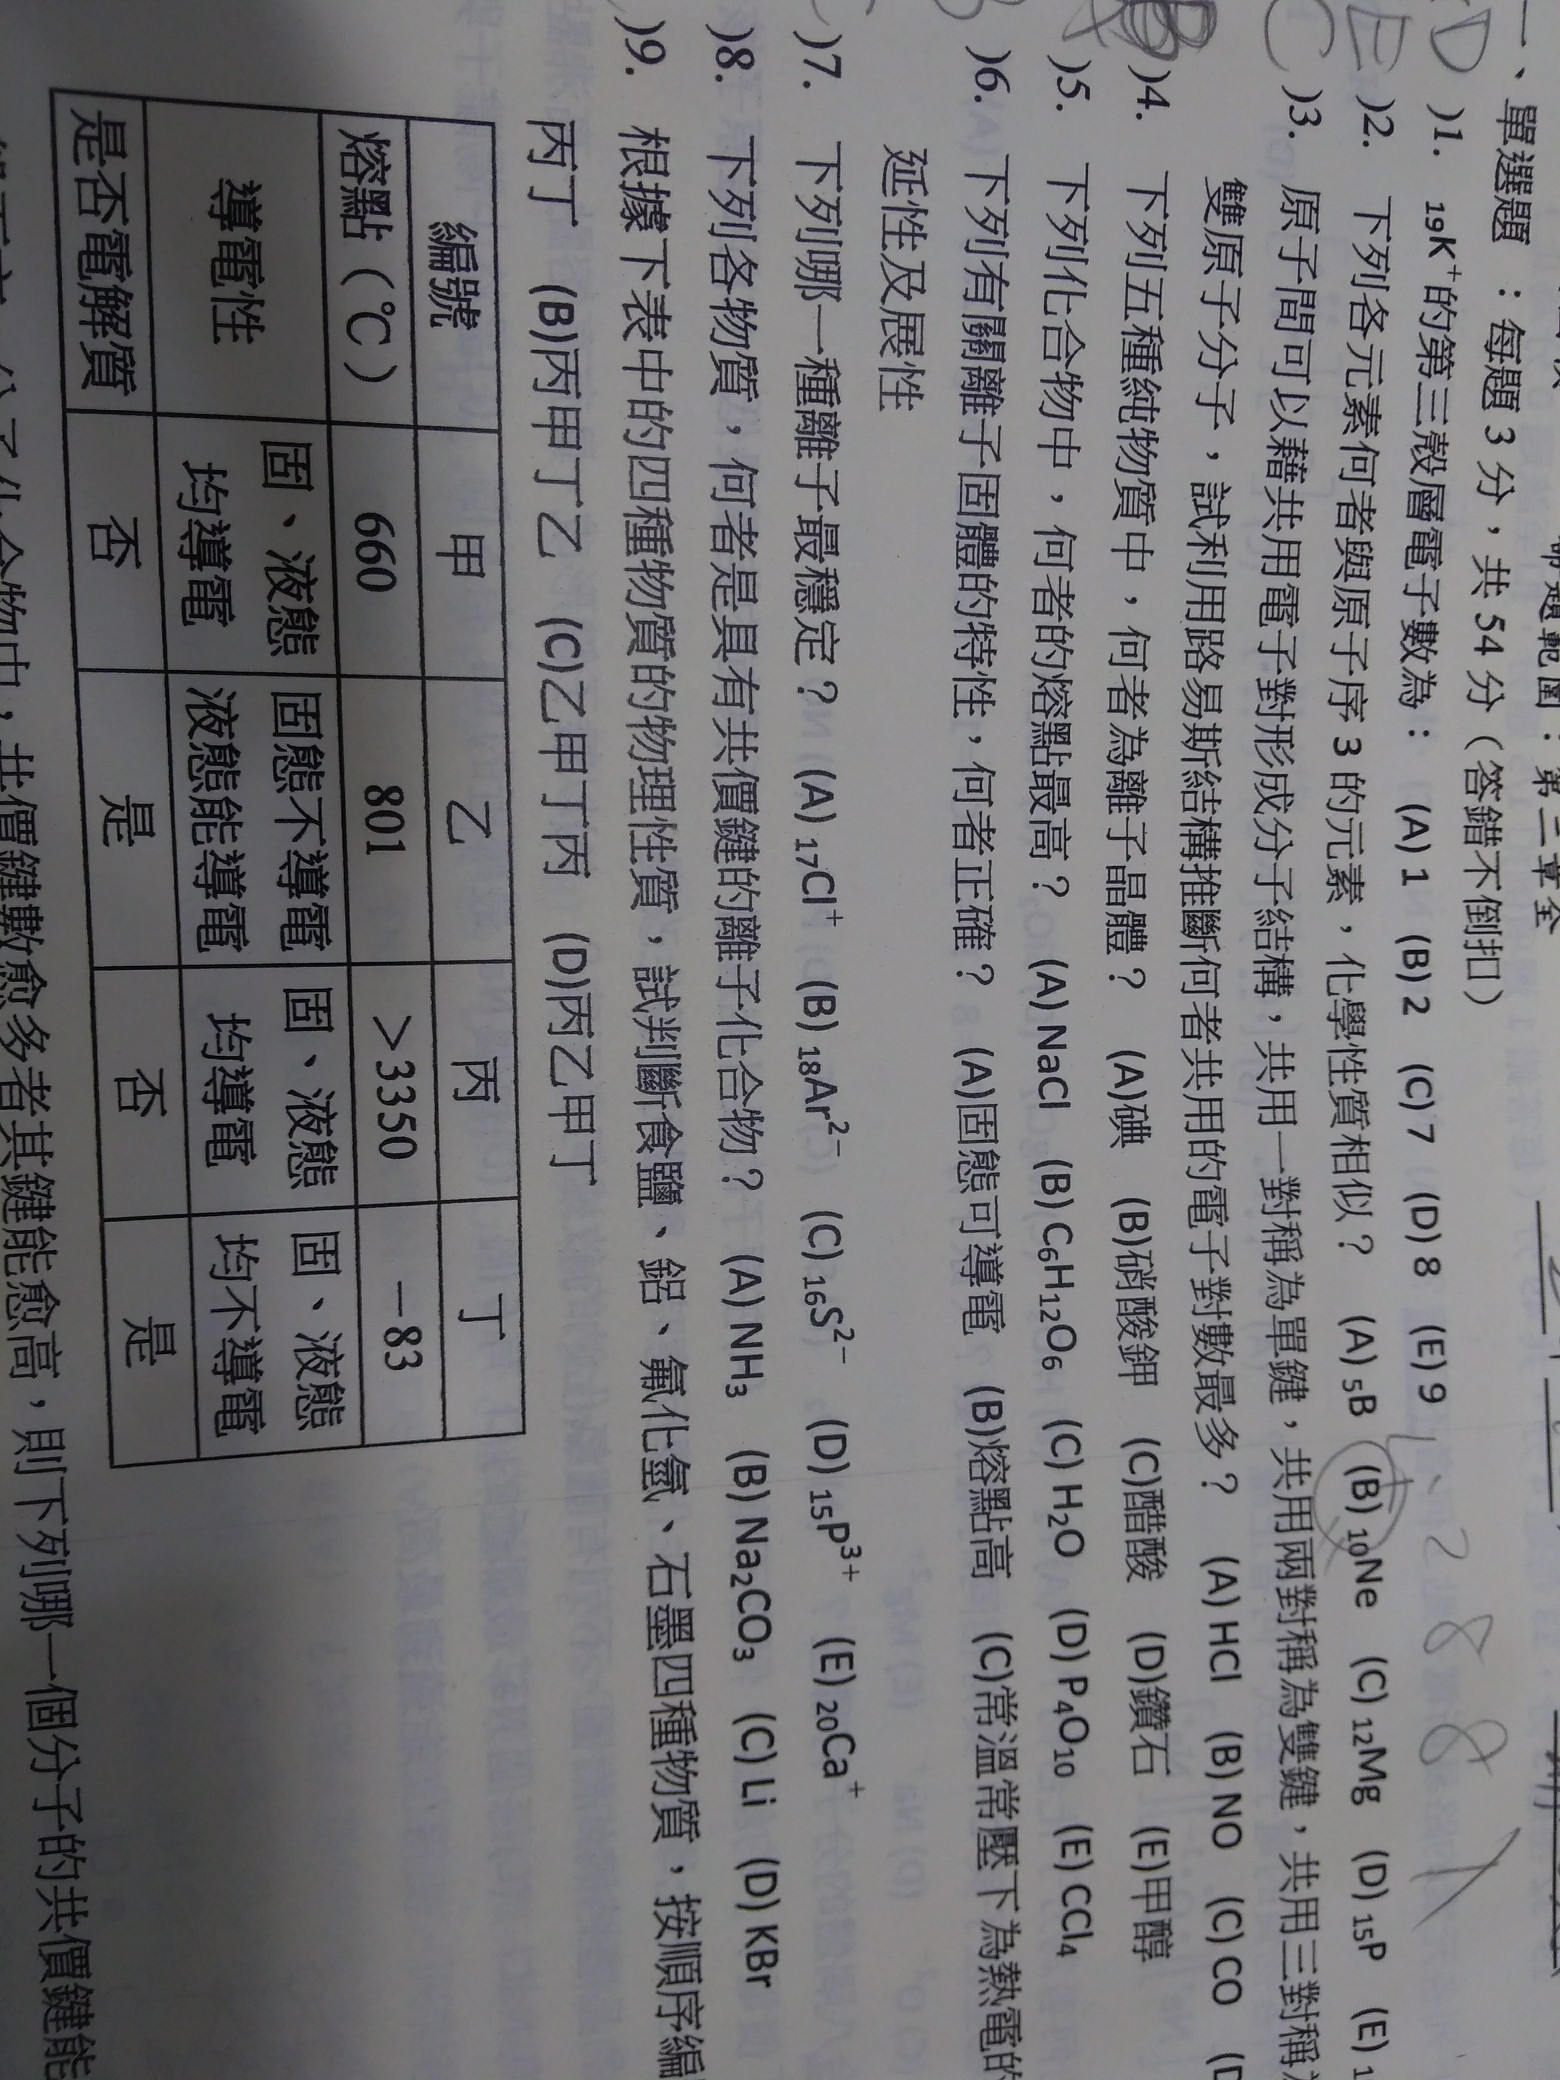 命題範圍：第三章全
一、單選題：每題 3 分，共 54 分（答錯不倒扣）
D )1. ₁₉K⁺的第三殼層電子數為： (A) 1 (B) 2 (C) 7 (D) 8 (E) 9
2 8 8 1
E )2. 下列各元素何者與原子序 3 的元素，化學性質相似？ (A) ₅B (B) ₁₀Ne (C) ₁₂Mg (D) ₁₅P (E) 1
C )3. 原子間可以藉共用電子對形成分子結構，共用一對稱為單鍵，共用兩對稱為雙鍵，共用三對稱
雙原子分子，試利用路易斯結構推斷何者共用的電子對數最多？ (A) HCl (B) NO (C) CO (D
B )4. 下列五種純物質中，何者為離子晶體？ (A)碘 (B)硝酸鉀 (C)醋酸 (D)鑽石 (E)甲醇
)5. 下列化合物中，何者的熔點最高？ (A) NaCl (B) C₆H₁₂O₆ (C) H₂O (D) P₄O₁₀ (E) CCl₄
)6. 下列有關離子固體的特性，何者正確？ (A)固態可導電 (B)熔點高 (C)常溫常壓下為熱電的
延性及展性
)7. 下列哪一種離子最穩定？ (A) ₁₇Cl⁺ (B) ₁₈Ar²⁻ (C) ₁₆S²⁻ (D) ₁₅P³⁺ (E) ₂₀Ca⁺
)8. 下列各物質，何者是具有共價鍵的離子化合物？ (A) NH₃ (B) Na₂CO₃ (C) Li (D) KBr
)9. 根據下表中的四種物質的物理性質，試判斷食鹽、鋁、氟化氫、石墨四種物質，按順序編
丙丁 (B)丙甲丁乙 (C)乙甲丁丙 (D)丙乙甲丁
編號 甲 乙 丙 丁
熔點（℃） 660 801 ＞3350 －83
導電性 固、液態均導電 固態不導電液態能導電 固、液態均導電 固、液態均不導電
是否電解質 否 是 否 是
分子化合物中，共價鍵數愈多者其鍵能愈高，則下列哪一個分子的共價鍵能